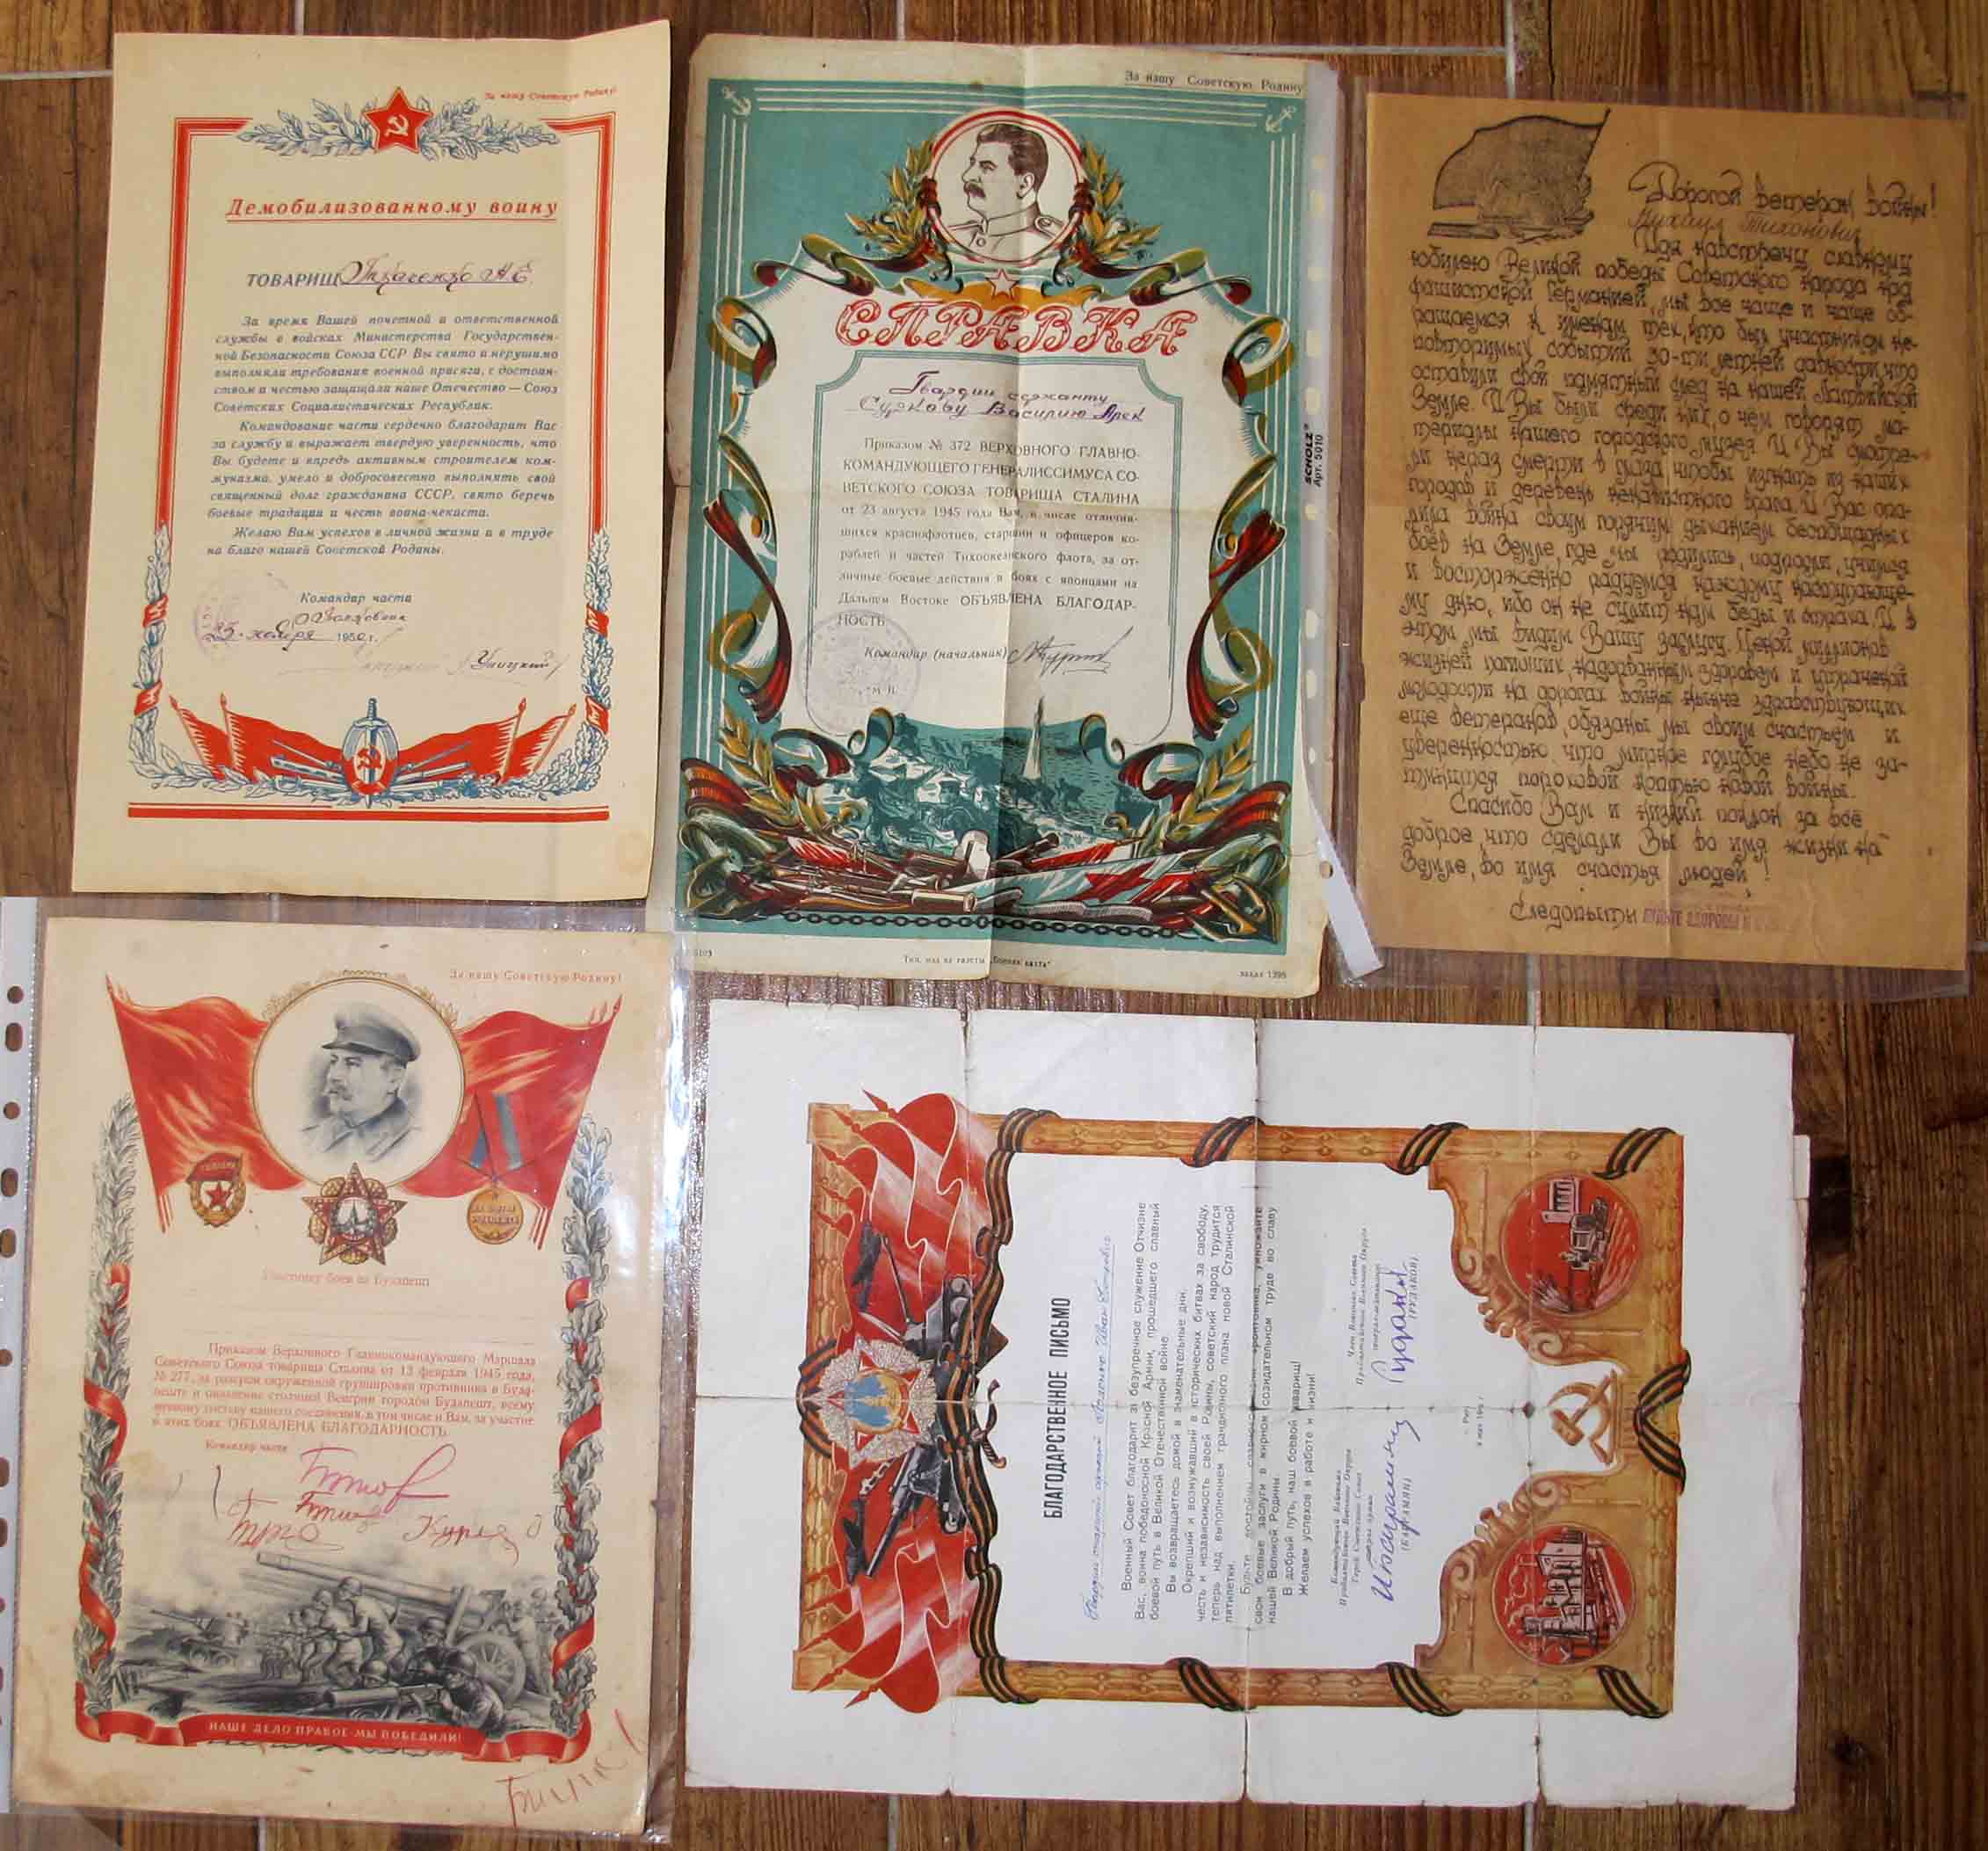 За нашу Советскую Родину!
Демобилизованному воину
ТОВАРИЩ
За время Вашей почетной и ответственной
службы в войсках Министерства Государствен-
ной Безопасности Союза ССР Вы свято и нерушимо
выполняли требования военной присяги, с достоин-
ством и честью защищали наше Отечество — Союз
Советских Социалистических Республик.
Командование части сердечно благодарит Вас
за службу и выражает твердую уверенность, что
Вы будете и впредь активным строителем ком-
мунизма, умело и добросовестно выполнять свой
священный долг гражданина СССР, свято беречь
боевые традиции и честь воина-чекиста.
Желаю Вам успехов в личной жизни и в труде
на благо нашей Советской Родины.
Командир части
25 ноября 1950 г.
За нашу Советскую Родину
СПРАВКА
Гвардии сержанту
Суркову Василию Алек
Приказом № 372 ВЕРХОВНОГО ГЛАВНО-
КОМАНДУЮЩЕГО ГЕНЕРАЛИССИМУСА СО-
ВЕТСКОГО СОЮЗА ТОВАРИЩА СТАЛИНА
от 23 августа 1945 года Вам, в числе отличив-
шихся краснофлотцев, старшин и офицеров ко-
раблей и частей Тихоокеанского флота, за от-
личные боевые действия в боях с японцами на
Дальнем Востоке ОБЪЯВЛЕНА БЛАГОДАР-
НОСТЬ
Командир (начальник)
М. П.
Тип. изд-ва газеты „Боевая вахта“
заказ 1395
SCHOLZ
Арт. 5010
Дорогой ветеран войны!
Михаил Тихонович
Идя навстречу славному
юбилею Великой победы Советского народа над
фашистской Германией, мы все чаще и чаще об-
ращаемся к именам тех, кто был участником не-
повторимых событий 30-ти летней давности, кто
оставил свой памятный след на нашей Латвийской
Земле. И Вы были среди них, о чем говорят ма-
териалы нашего городского музея. И Вы смотре-
ли нераз смерти в глаза, чтобы изгнать из наших
городов и деревень ненавистного врага. И Вас опа-
лила война своим горячим дыханием беспощадных
боёв на Земле, где мы родились, подросли, учимся
и восторженно радуемся каждому наступающе-
му дню, ибо он не сулит нам беды и страха. И в
этом мы видим Вашу заслугу. Ценой миллионов
жизней погибших, надорванным здоровьем и утраченной
молодости на дорогах войны ныне здравствующих
еще ветеранов, обязаны мы своим счастьем и
уверенностью, что мирное голубое небо не за-
тмится пороховой копотью новой войны.
Спасибо Вам и низкий поклон за всё
доброе, что сделали Вы во имя жизни на
Земле, во имя счастья людей!
Следопыты
За нашу Советскую Родину!
Участнику боев за Будапешт
Приказом Верховного Главнокомандующего Маршала
Советского Союза товарища Сталина от 13 февраля 1945 года,
№ 277, за разгром окруженной группировки противника в Буда-
пеште и овладение столицей Венгрии городом Будапешт, всему
личному составу нашего соединения, в том числе и Вам, за участие
в этих боях ОБЪЯВЛЕНА БЛАГОДАРНОСТЬ
Командир части
НАШЕ ДЕЛО ПРАВОЕ-МЫ ПОБЕДИЛИ!
БЛАГОДАРСТВЕННОЕ ПИСЬМО
Военный Совет благодарит за безупречное служение Отчизне
Вас, воина победоносной Красной Армии, прошедшего славный
боевой путь в Великой Отечественной войне
Вы возвращаетесь домой в знаменательные дни.
Окрепший и возмужавший в исторических битвах за свободу,
честь и независимость своей Родины, советский народ трудится
теперь над выполнением грандиозного плана новой Сталинской
пятилетки.
свои боевые заслуги в мирном созидательном труде во славу
нашей Великой Родины
В добрый путь, наш боевой товарищ!
Желаем успехов в работе и жизни!
Командующий Войсками
Прибалтийского Военного Округа
Герой Советского Союза
генерал армии
(БАГРАМЯН)
Член Военного Совета
Прибалтийского Военного Округа
генерал-лейтенант
(РУДАКОВ)
г. Рига